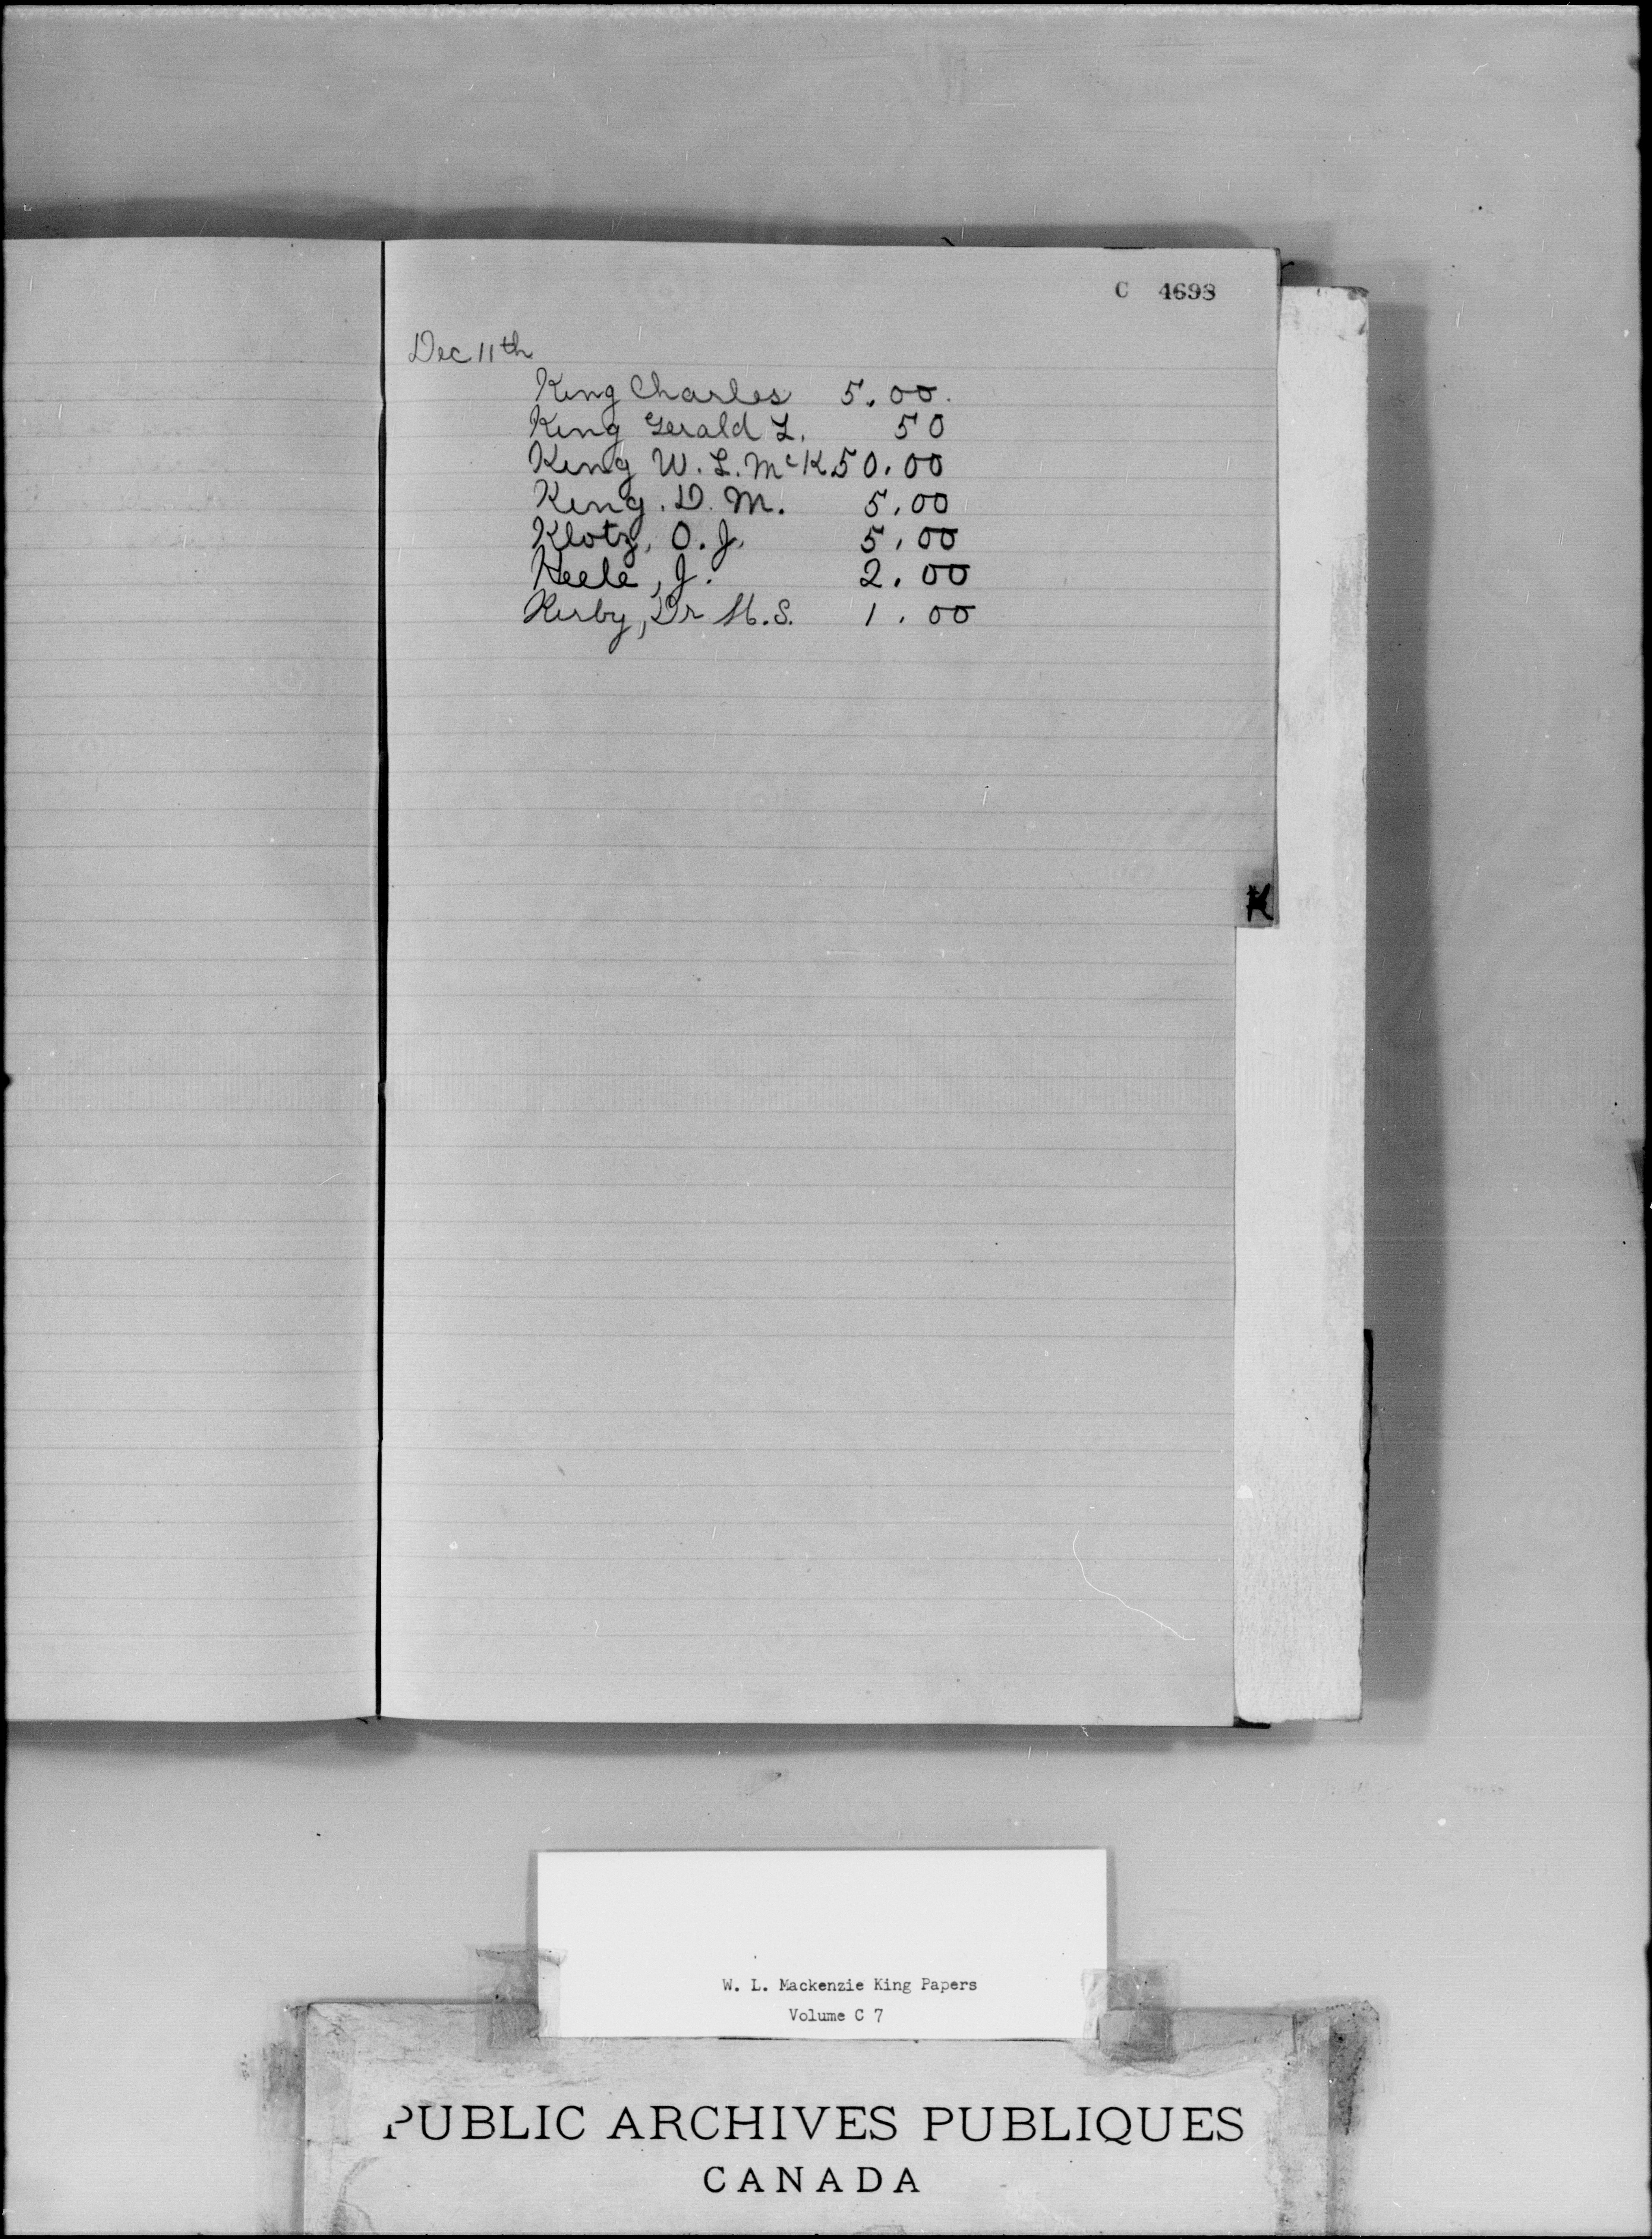 C 4698
Dec 11th
King Charles 5.00.
King Gerald L. 50
King W. L. McK 50.00
King. D. M. 5.00
Klotz, O. J. 5.00
Keele, J. 2.00
Kirby, Dr H.S. 1.00
K
W. L. Mackenzie King Papers
Volume C 7
PUBLIC ARCHIVES PUBLIQUES
CANADA